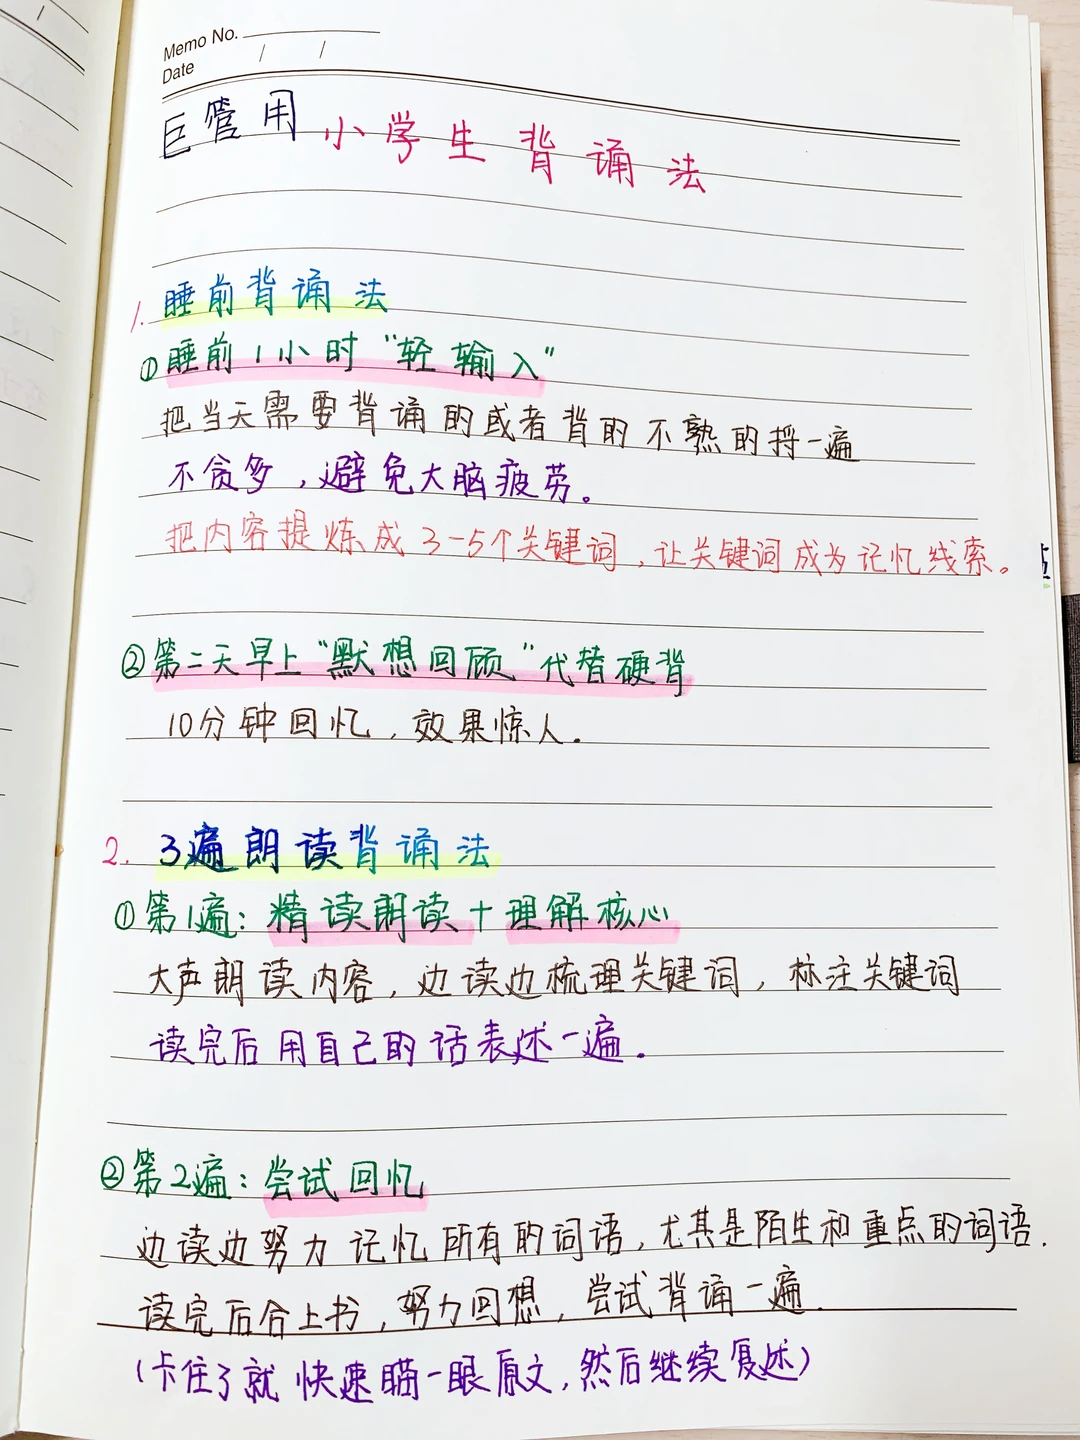 Memo No.
Date / /
巨管用 小学生背诵法
1. 睡前背诵法
①睡前1小时“轻输入”
把当天需要背诵的或者背的不熟的捋一遍
不贪多，避免大脑疲劳。
把内容提炼成3-5个关键词，让关键词成为记忆线索。
②第二天早上“默想回顾”代替硬背
10分钟回忆，效果惊人。
2. 3遍朗读背诵法
①第1遍：精读朗读+理解核心
大声朗读内容，边读边梳理关键词，标注关键词
读完后用自己的话表述一遍.
②第2遍：尝试回忆
边读边努力记忆所有的词语，尤其是陌生和重点的词语.
读完后合上书，努力回想，尝试背诵一遍.
(卡住了就快速瞄一眼原文，然后继续复述)